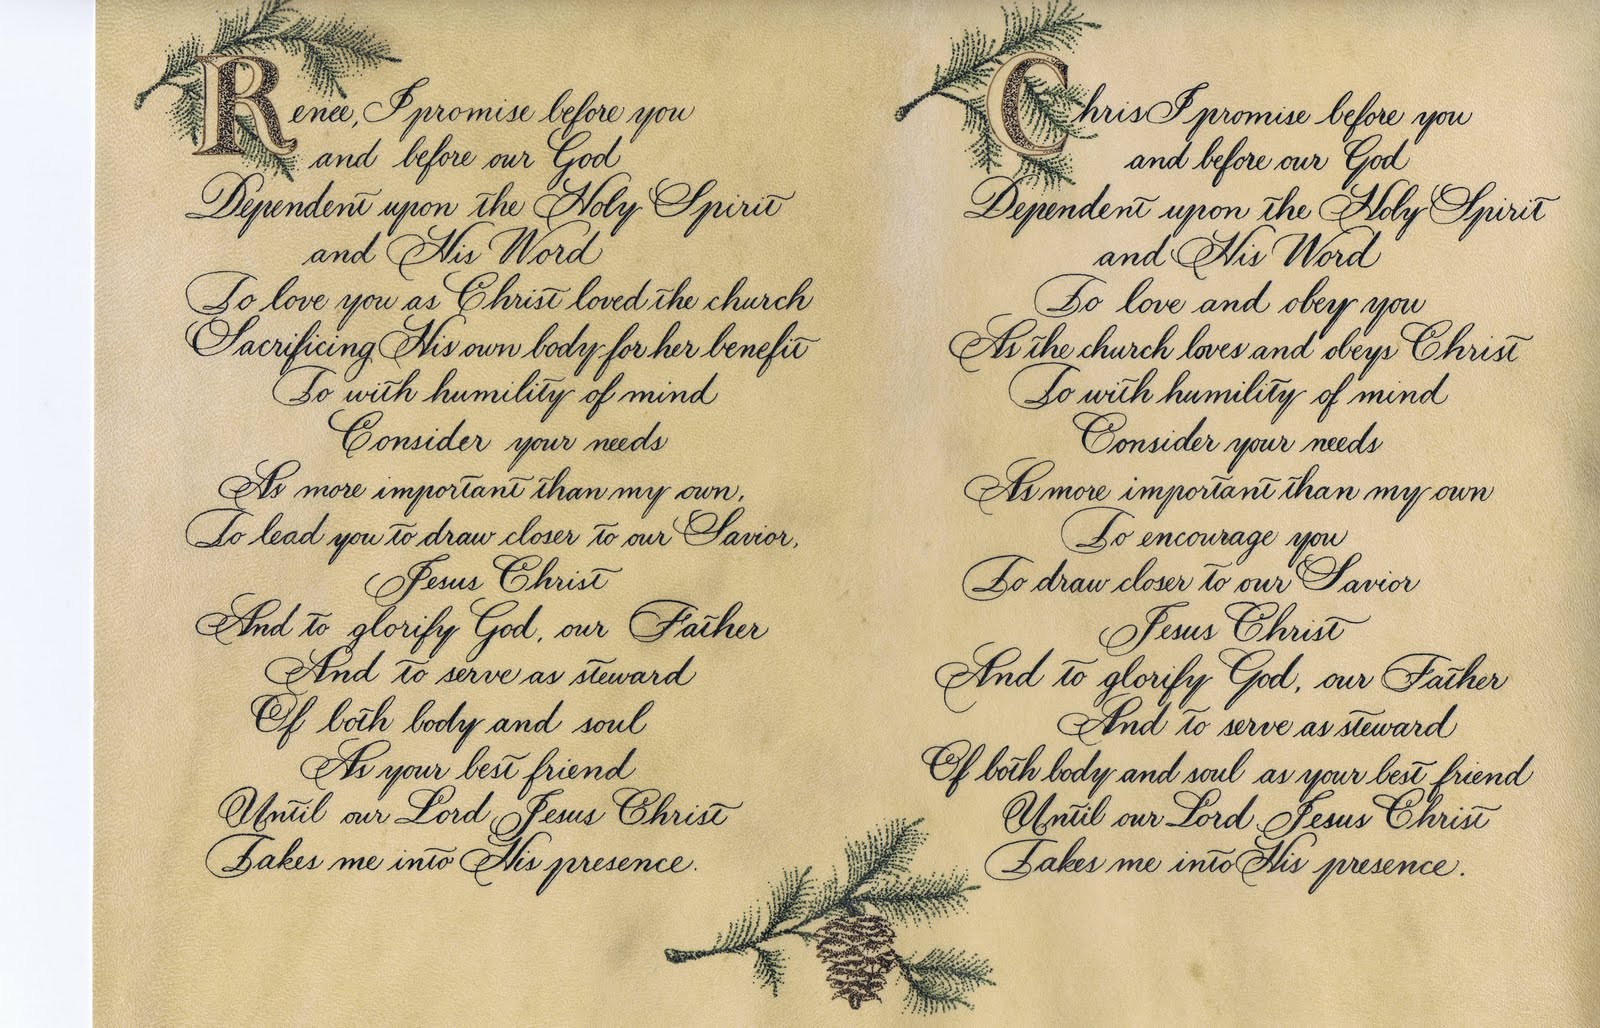 Renee, I promise before you
and before our God
Dependent upon the Holy Spirit
and His Word
To love you as Christ loved the church
Sacrificing His own body for her benefit
To with humility of mind
Consider your needs
As more important than my own,
To lead you to draw closer to our Savior,
Jesus Christ
And to glorify God, our Father
And to serve as steward
Of both body and soul
As your best friend
Until our Lord Jesus Christ
Takes me into His presence.
Chris I promise before you
and before our God
Dependent upon the Holy Spirit
and His Word
To love and obey you
As the church loves and obeys Christ
To with humility of mind
Consider your needs
As more important than my own
To encourage you
To draw closer to our Savior
Jesus Christ
And to glorify God, our Father
And to serve as steward
Of both body and soul as your best friend
Until our Lord Jesus Christ
Takes me into His presence.